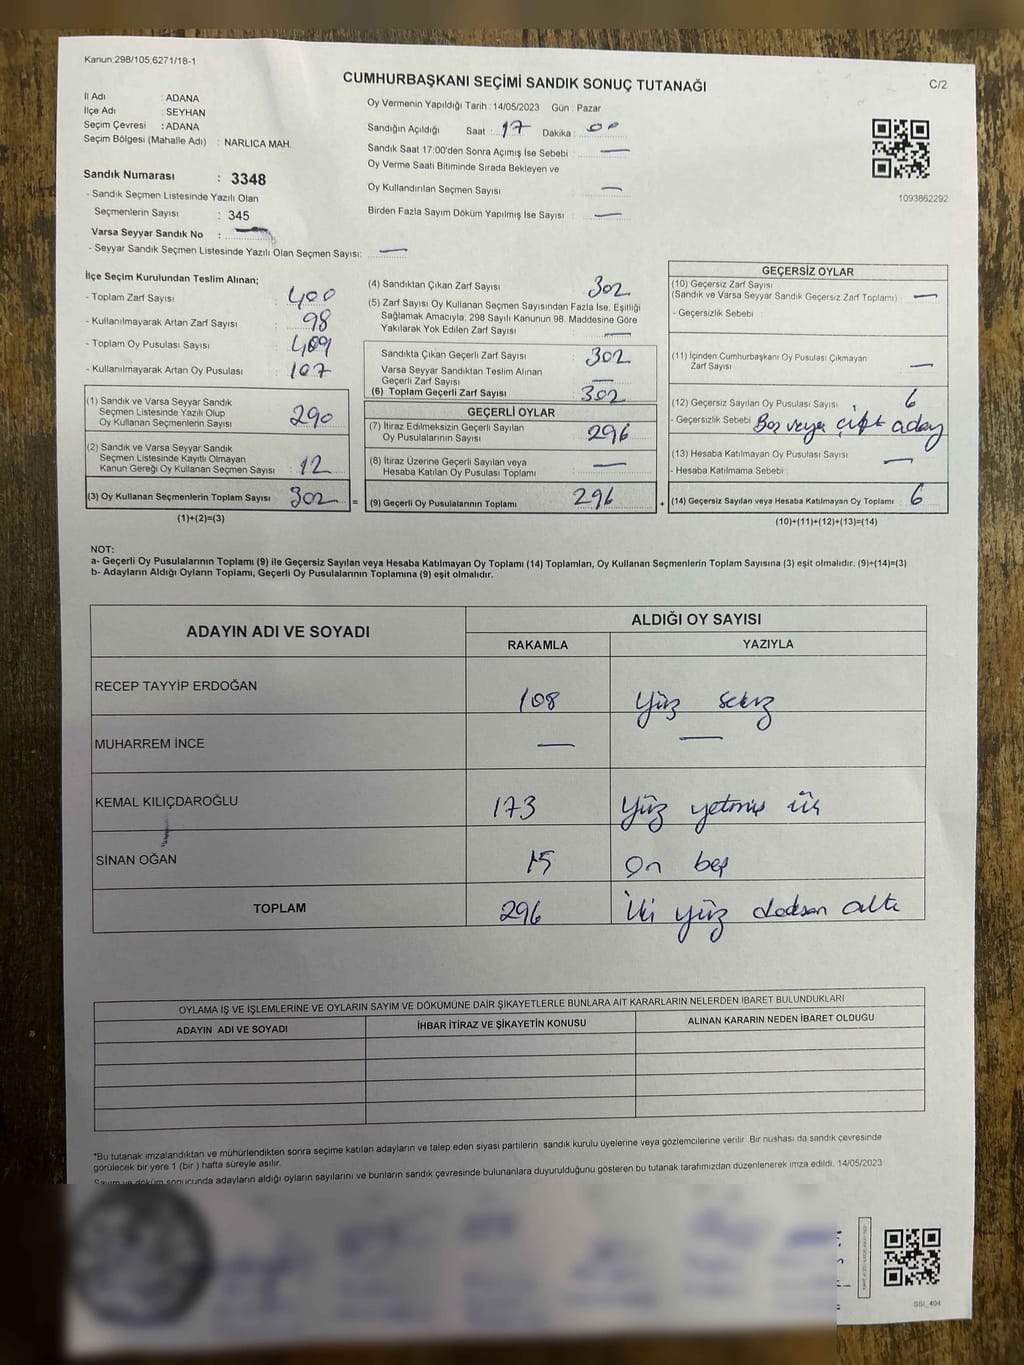 Kanun:298/105,6271/18-1
CUMHURBAŞKANI SEÇİMİ SANDIK SONUÇ TUTANAĞI
C/2
İl Adı : ADANA
İlçe Adı : SEYHAN
Seçim Çevresi : ADANA
Seçim Bölgesi (Mahalle Adı) : NARLICA MAH.
Oy Vermenin Yapıldığı Tarih : 14/05/2023 Gün : Pazar
Sandığın Açıldığı Saat : 17 Dakika : 00
Sandık Saat 17:00'den Sonra Açımış İse Sebebi : —
Oy Verme Saati Bitiminde Sırada Bekleyen ve
Oy Kullandırılan Seçmen Sayısı —
Birden Fazla Sayım Döküm Yapılmış İse Sayısı : —
1093862292
Sandık Numarası : 3348
- Sandık Seçmen Listesinde Yazılı Olan
Seçmenlerin Sayısı : 345
Varsa Seyyar Sandık No : —
- Seyyar Sandık Seçmen Listesinde Yazılı Olan Seçmen Sayısı: —
İlçe Seçim Kurulundan Teslim Alınan;
- Toplam Zarf Sayısı : 400
- Kullanılmayarak Artan Zarf Sayısı : 98
- Toplam Oy Pusulası Sayısı : 409
- Kullanılmayarak Artan Oy Pusulası : 107
(1) Sandık ve Varsa Seyyar Sandık
Seçmen Listesinde Yazılı Olup
Oy Kullanan Seçmenlerin Sayısı 290
(2) Sandık ve Varsa Seyyar Sandık
Seçmen Listesinde Kayıtlı Olmayan
Kanun Gereği Oy Kullanan Seçmen Sayısı 12
(3) Oy Kullanan Seçmenlerin Toplam Sayısı 302 =
(1)+(2)=(3)
(4) Sandıktan Çıkan Zarf Sayısı 302
(5) Zarf Sayısı Oy Kullanan Seçmen Sayısından Fazla İse, Eşitliği
Sağlamak Amacıyla; 298 Sayılı Kanunun 98. Maddesine Göre
Yakılarak Yok Edilen Zarf Sayısı —
Sandıkta Çıkan Geçerli Zarf Sayısı 302
Varsa Seyyar Sandıktan Teslim Alınan
Geçerli Zarf Sayısı —
(6) Toplam Geçerli Zarf Sayısı 302
GEÇERLİ OYLAR
(7) İtiraz Edilmeksizin Geçerli Sayılan
Oy Pusulalarının Sayısı 296
(8) İtiraz Üzerine Geçerli Sayılan veya
Hesaba Katılan Oy Pusulası Toplamı —
(9) Geçerli Oy Pusulalarının Toplamı 296 +
GEÇERSİZ OYLAR
(10) Geçersiz Zarf Sayısı
(Sandık ve Varsa Seyyar Sandık Geçersiz Zarf Toplamı) —
- Geçersizlik Sebebi :
(11) İçinden Cumhurbaşkanı Oy Pusulası Çıkmayan
Zarf Sayısı —
(12) Geçersiz Sayılan Oy Pusulası Sayısı 6
- Geçersizlik Sebebi Boş veya çift aday
(13) Hesaba Katılmayan Oy Pusulası Sayısı —
- Hesaba Katılmama Sebebi
(14) Geçersiz Sayılan veya Hesaba Katılmayan Oy Toplamı 6
(10)+(11)+(12)+(13)=(14)
NOT:
a- Geçerli Oy Pusulalarının Toplamı (9) ile Geçersiz Sayılan veya Hesaba Katılmayan Oy Toplamı (14) Toplamları, Oy Kullanan Seçmenlerin Toplam Sayısına (3) eşit olmalıdır. (9)+(14)=(3)
b- Adayların Aldığı Oyların Toplamı, Geçerli Oy Pusulalarının Toplamına (9) eşit olmalıdır.
ADAYIN ADI VE SOYADI
ALDIĞI OY SAYISI
RAKAMLA YAZIYLA
RECEP TAYYİP ERDOĞAN 108 Yüz sekiz
MUHARREM İNCE — —
KEMAL KILIÇDAROĞLU 173 Yüz yetmiş üç
SİNAN OĞAN 15 On beş
TOPLAM 296 İki yüz doksan altı
OYLAMA İŞ VE İŞLEMLERİNE VE OYLARIN SAYIM VE DÖKÜMÜNE DAİR ŞİKAYETLERLE BUNLARA AİT KARARLARIN NELERDEN İBARET BULUNDUKLARI
ADAYIN ADI VE SOYADI İHBAR İTİRAZ VE ŞİKAYETİN KONUSU ALINAN KARARIN NEDEN İBARET OLDUĞU
*Bu tutanak imzalandıktan ve mühürlendikten sonra seçime katılan adayların ve talep eden siyasi partilerin sandık kurulu üyelerine veya gözlemcilerine verilir. Bir nushası da sandık çevresinde
görülecek bir yere 1 (bir ) hafta süreyle asılır.
Sayım ve döküm sonucunda adayların aldığı oyların sayılarını ve bunların sandık çevresinde bulunanlara duyurulduğunu gösteren bu tutanak tarafımızdan düzenlenerek imza edildi. 14/05/2023